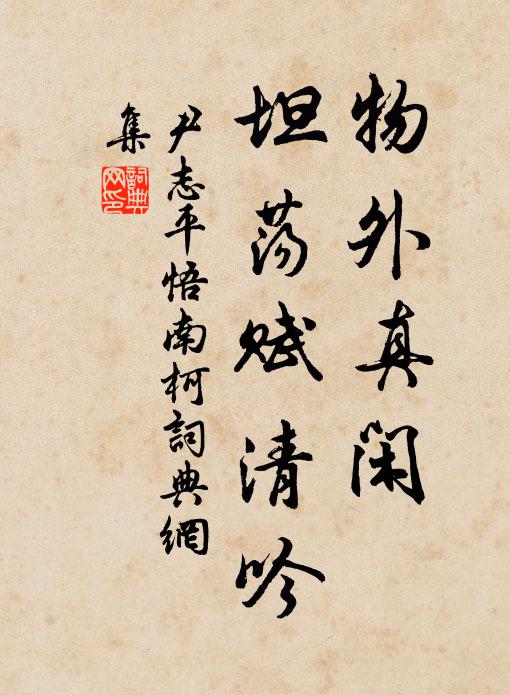 物外真闲
坦荡赋清吟
尹志平悟南柯詞典網
集
詞典网印